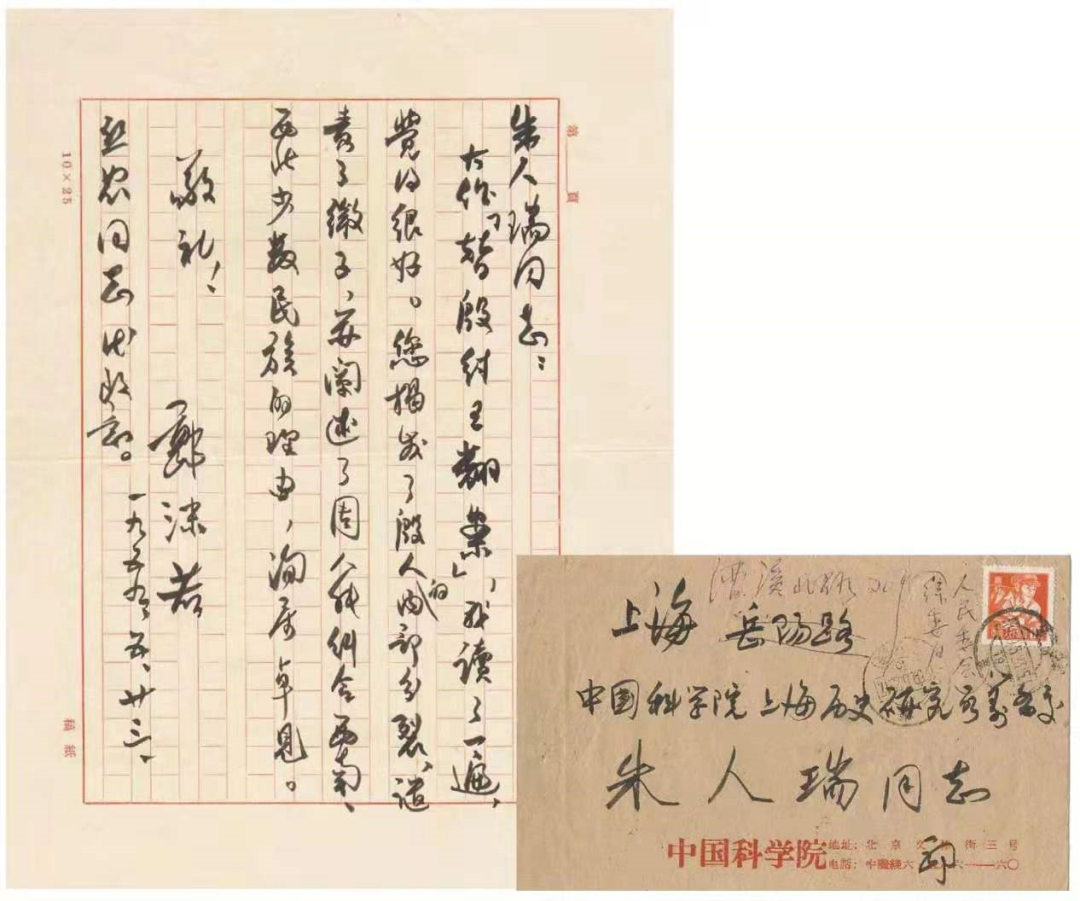 第 頁
朱人瑞同志：
大作「替殷紂王翻案」，我讀了一遍，
覺得很好。您揭发了殷人的内部分裂，谴
責了微子，并阐述了周人能糾合西南、
西北少数民族的理由，洵属卓見。
敬礼！
郭沫若
同志代 。一九五九、五、廿三、
10×25
稿紙
漕溪北路
人民委会
上海 岳阳路
中国科学院上海历史研究所筹委
朱人瑞同志
中国科学院
地址：北京文 街三号
电话： 六 六一一六〇
郭